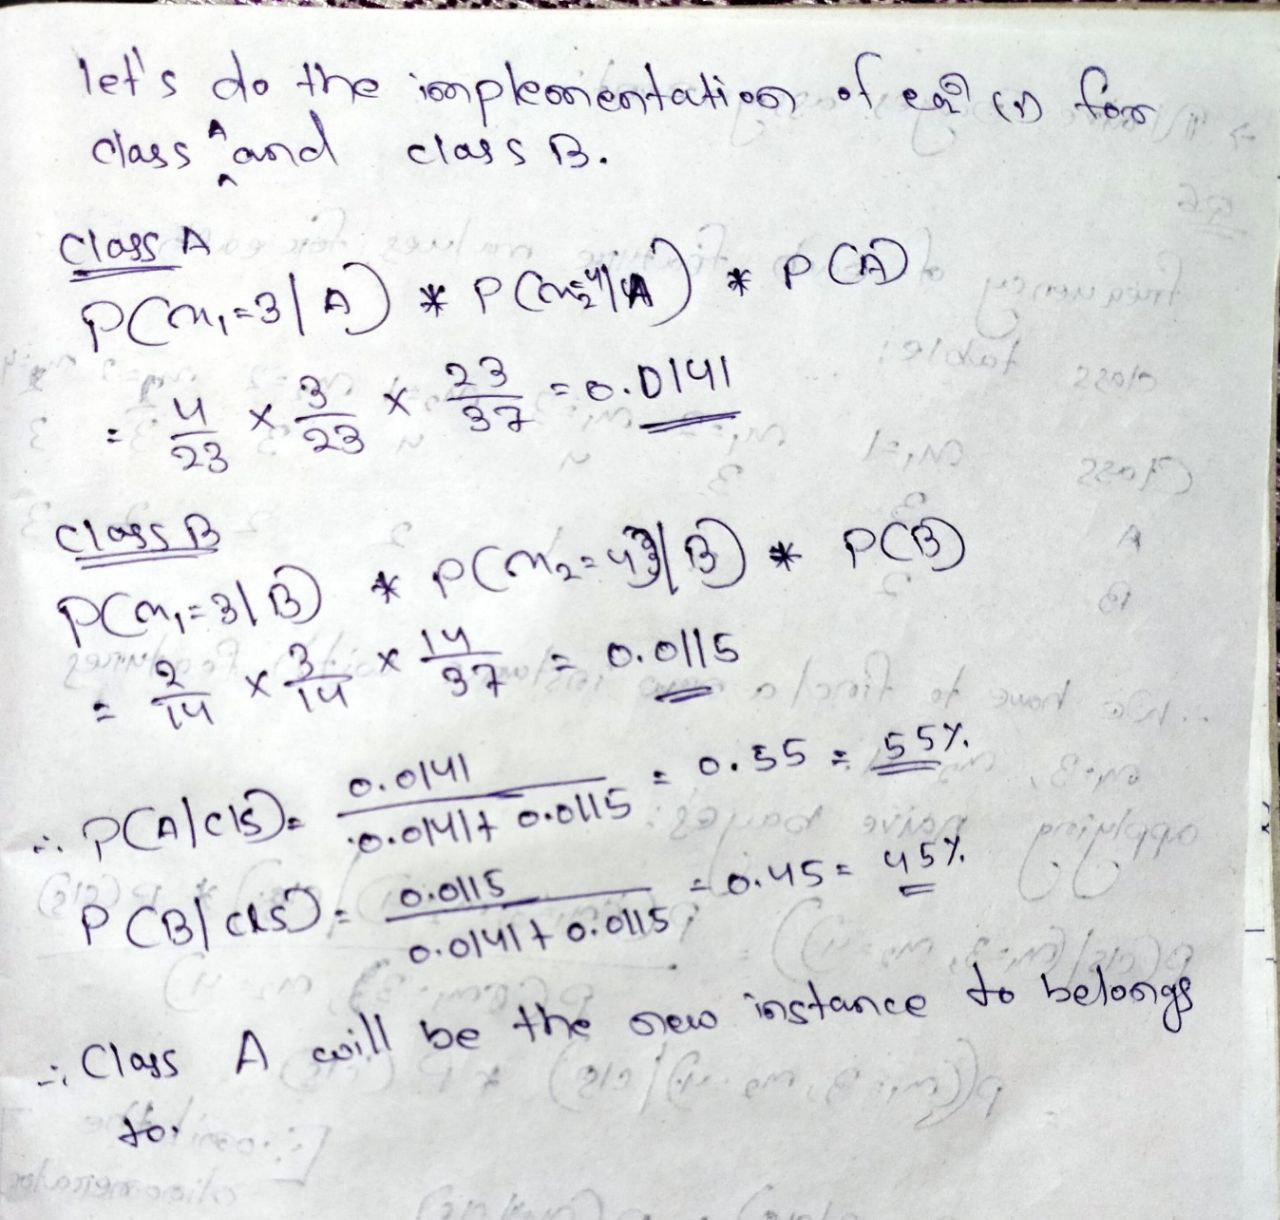 let's do the implementation of eqn (1) for
class A and class B.
Class A
P(m₁=3|A) * P(m₂=4|A) * P(A)
= 4/23 × 3/23 × 23/37 = 0.0141
Class B
P(m₁=3|B) * P(m₂=4|B) * P(B)
= 2/14 × 3/14 × 14/37 = 0.0115
∴ P(A|cls) = 0.0141/0.0141+0.0115 = 0.55 = 55%
P(B|cls) = 0.0115/0.0141+0.0115 = 0.45 = 45%
∴ Class A will be the new instance to belongs
to.